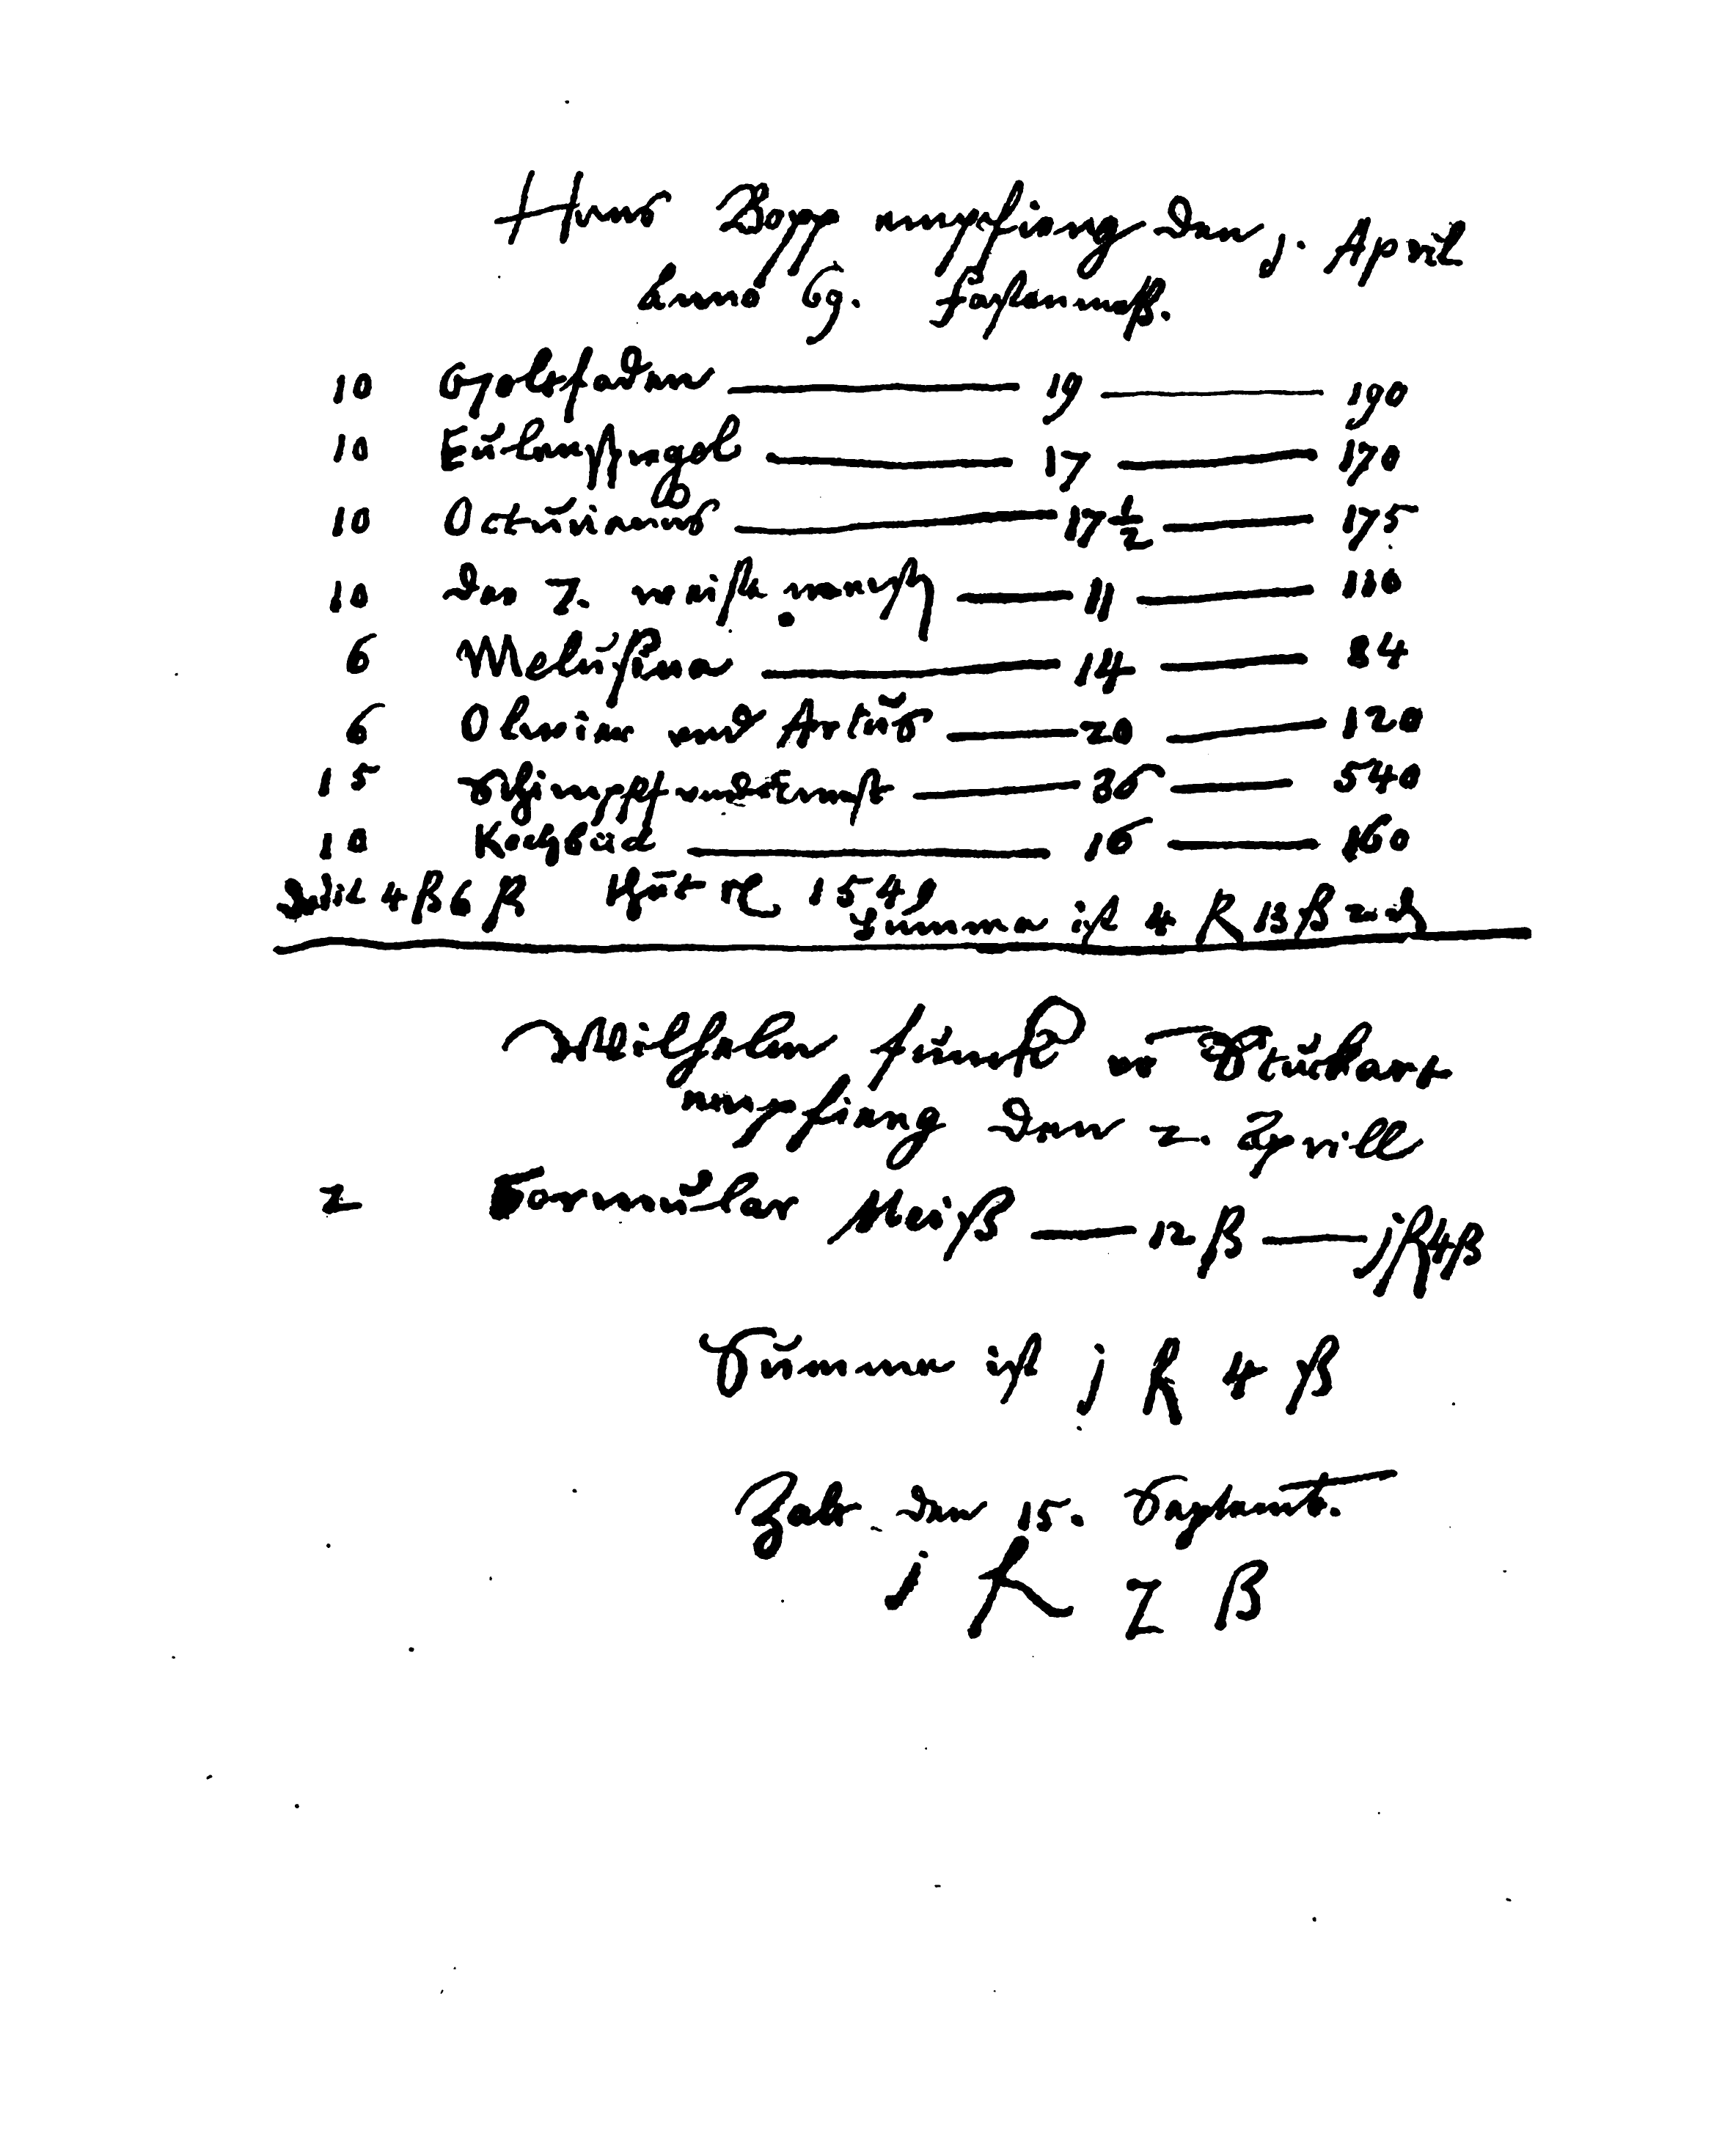 Hans Bopp empfieng den j. April
Anno 69. fastenmeß.
10 Goltfaden — 19 — 190
10 Eulenspiegel — 17 — 170
10 Octauianus — 17½ — 175
10 der 7. weise meister — 11 — 110
6 Melusina — 14 — 84
6 Oliuier und Artus — 20 — 120
15 Schimpff und Ernst — 36 — 540
10 Kochbuch — 16 — 160
4 ß 6 fl 1549
Summa ist 4 fl 13 ß
Wilhelm funck vo Stuckart
empfieng den 2. Aprill
2 Formular Meiß — 12 ß — j fl 4 ß
Summa ist j fl 4 ß
Zalt den 15. Septemb.
j fl 2 ß